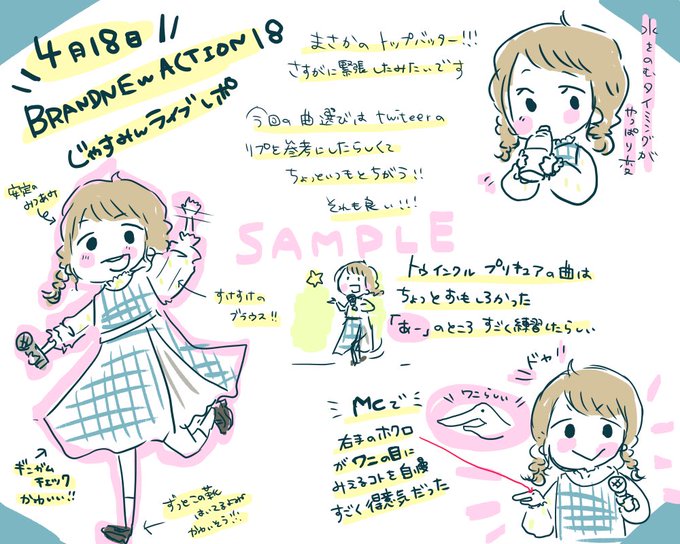 4月18日
BRANDNEW ACTION 18
じゃすみんライブレポ
まさかの トップバッター!!!
さすがに緊張したみたいです
今回の曲選びは twiteerの
リプを参考にしたらしくて
ちょっといつもとちがう!!
それも良い!!!
水をのむタイミングが
やっぱり変
安定の
みつあみ
SAMPLE
すけすけの
ブラウス!!
トゥインクル プリキュアの曲は
ちょっとおもしろかった
「あー」のところ すごく練習したらしい
MCで
右手のホクロ
がワニの目に
みえるコトを自慢
すごく得意気だった
ワニらしい
ドヤ!!
ギンガム
チェック
かわいい!!
ずっとこの靴
はいてるよね
かわいそう